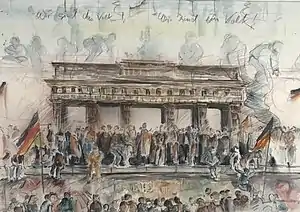 Wir sind das Volk ! Wir sind ein Volk !